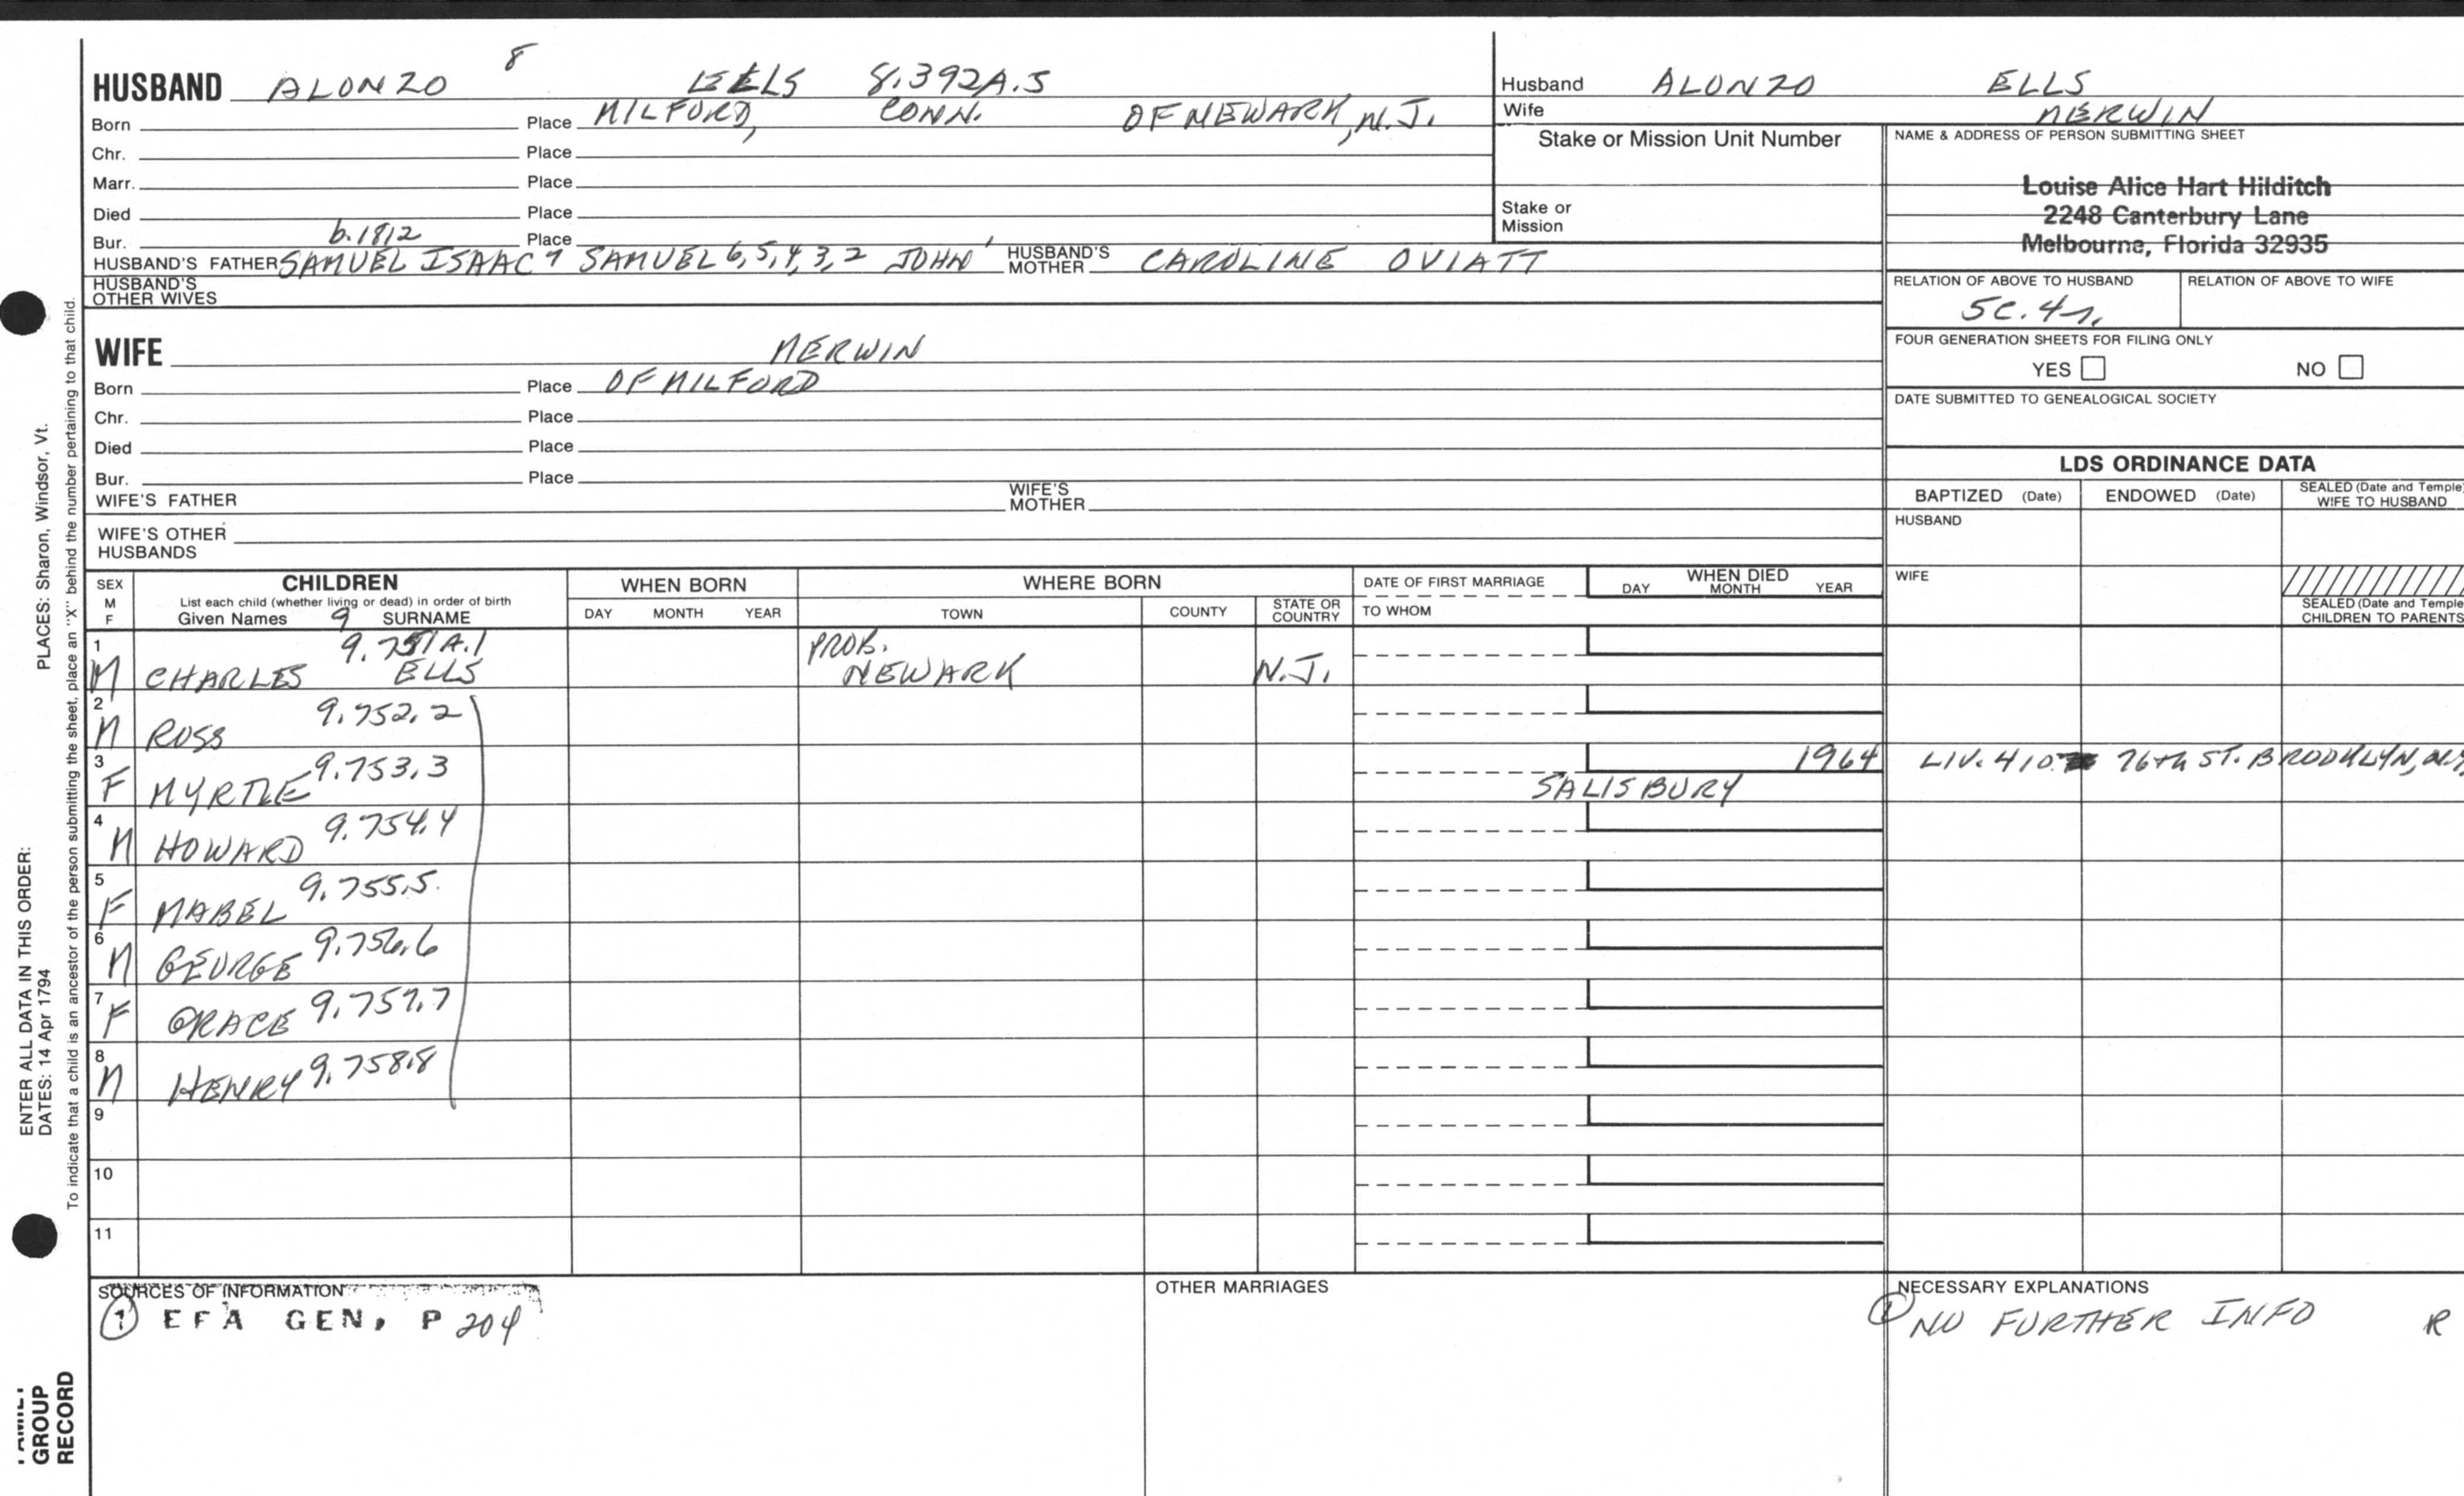 HUSBAND ALONZO 8 EELS 8.392A.5
Born Place MILFORD, CONN. OF NEWARK, N.J.
Chr. Place
Marr. Place
Died Place
Bur. b.1812 Place
HUSBAND'S FATHER SAMUEL ISAAC 7 SAMUEL 6, 5, 4, 3, 2 JOHN 1 HUSBAND'S MOTHER CAROLINE OVIATT
HUSBAND'S OTHER WIVES
WIFE MERWIN
Born Place OF MILFORD
Chr. Place
Died Place
Bur. Place
WIFE'S FATHER WIFE'S MOTHER
WIFE'S OTHER HUSBANDS
Husband ALONZO ELLS
Wife MERWIN
Stake or Mission Unit Number
Stake or Mission
NAME & ADDRESS OF PERSON SUBMITTING SHEET
Louise Alice Hart Hilditch
2248 Canterbury Lane
Melbourne, Florida 32935
RELATION OF ABOVE TO HUSBAND RELATION OF ABOVE TO WIFE
5C.4r.
FOUR GENERATION SHEETS FOR FILING ONLY
YES NO
DATE SUBMITTED TO GENEALOGICAL SOCIETY
LDS ORDINANCE DATA
BAPTIZED (Date) ENDOWED (Date) SEALED (Date and Temple) WIFE TO HUSBAND
HUSBAND
WIFE
SEALED (Date and Temple) CHILDREN TO PARENTS
SEX M F CHILDREN WHEN BORN WHERE BORN DATE OF FIRST MARRIAGE WHEN DIED
List each child (whether living or dead) in order of birth
Given Names 9 SURNAME DAY MONTH YEAR TOWN COUNTY STATE OR COUNTRY TO WHOM DAY MONTH YEAR
1 9.751A.1 PROB.
M CHARLES ELLS NEWARK N.J.
2 9.752.2
M ROSS
3 9.753.3 1964 LIV. 410 76th ST. BROOKLYN, N.Y.
F MYRTLE SALISBURY
4 9.754.4
M HOWARD
5 9.755.5.
F MABEL
6 9.756.6
M GEORGE
7 9.757.7
F GRACE
8 9.758.8
M HENRY
9
10
11
SOURCES OF INFORMATION OTHER MARRIAGES NECESSARY EXPLANATIONS
① EFA GEN. P 204 ① NO FURTHER INFO R
PLACES: Sharon, Windsor, Vt.
To indicate that a child is an ancestor of the person submitting the sheet, place an "X" behind the number pertaining to that child.
ENTER ALL DATA IN THIS ORDER:
DATES: 14 Apr 1794
FAMILY
GROUP
RECORD